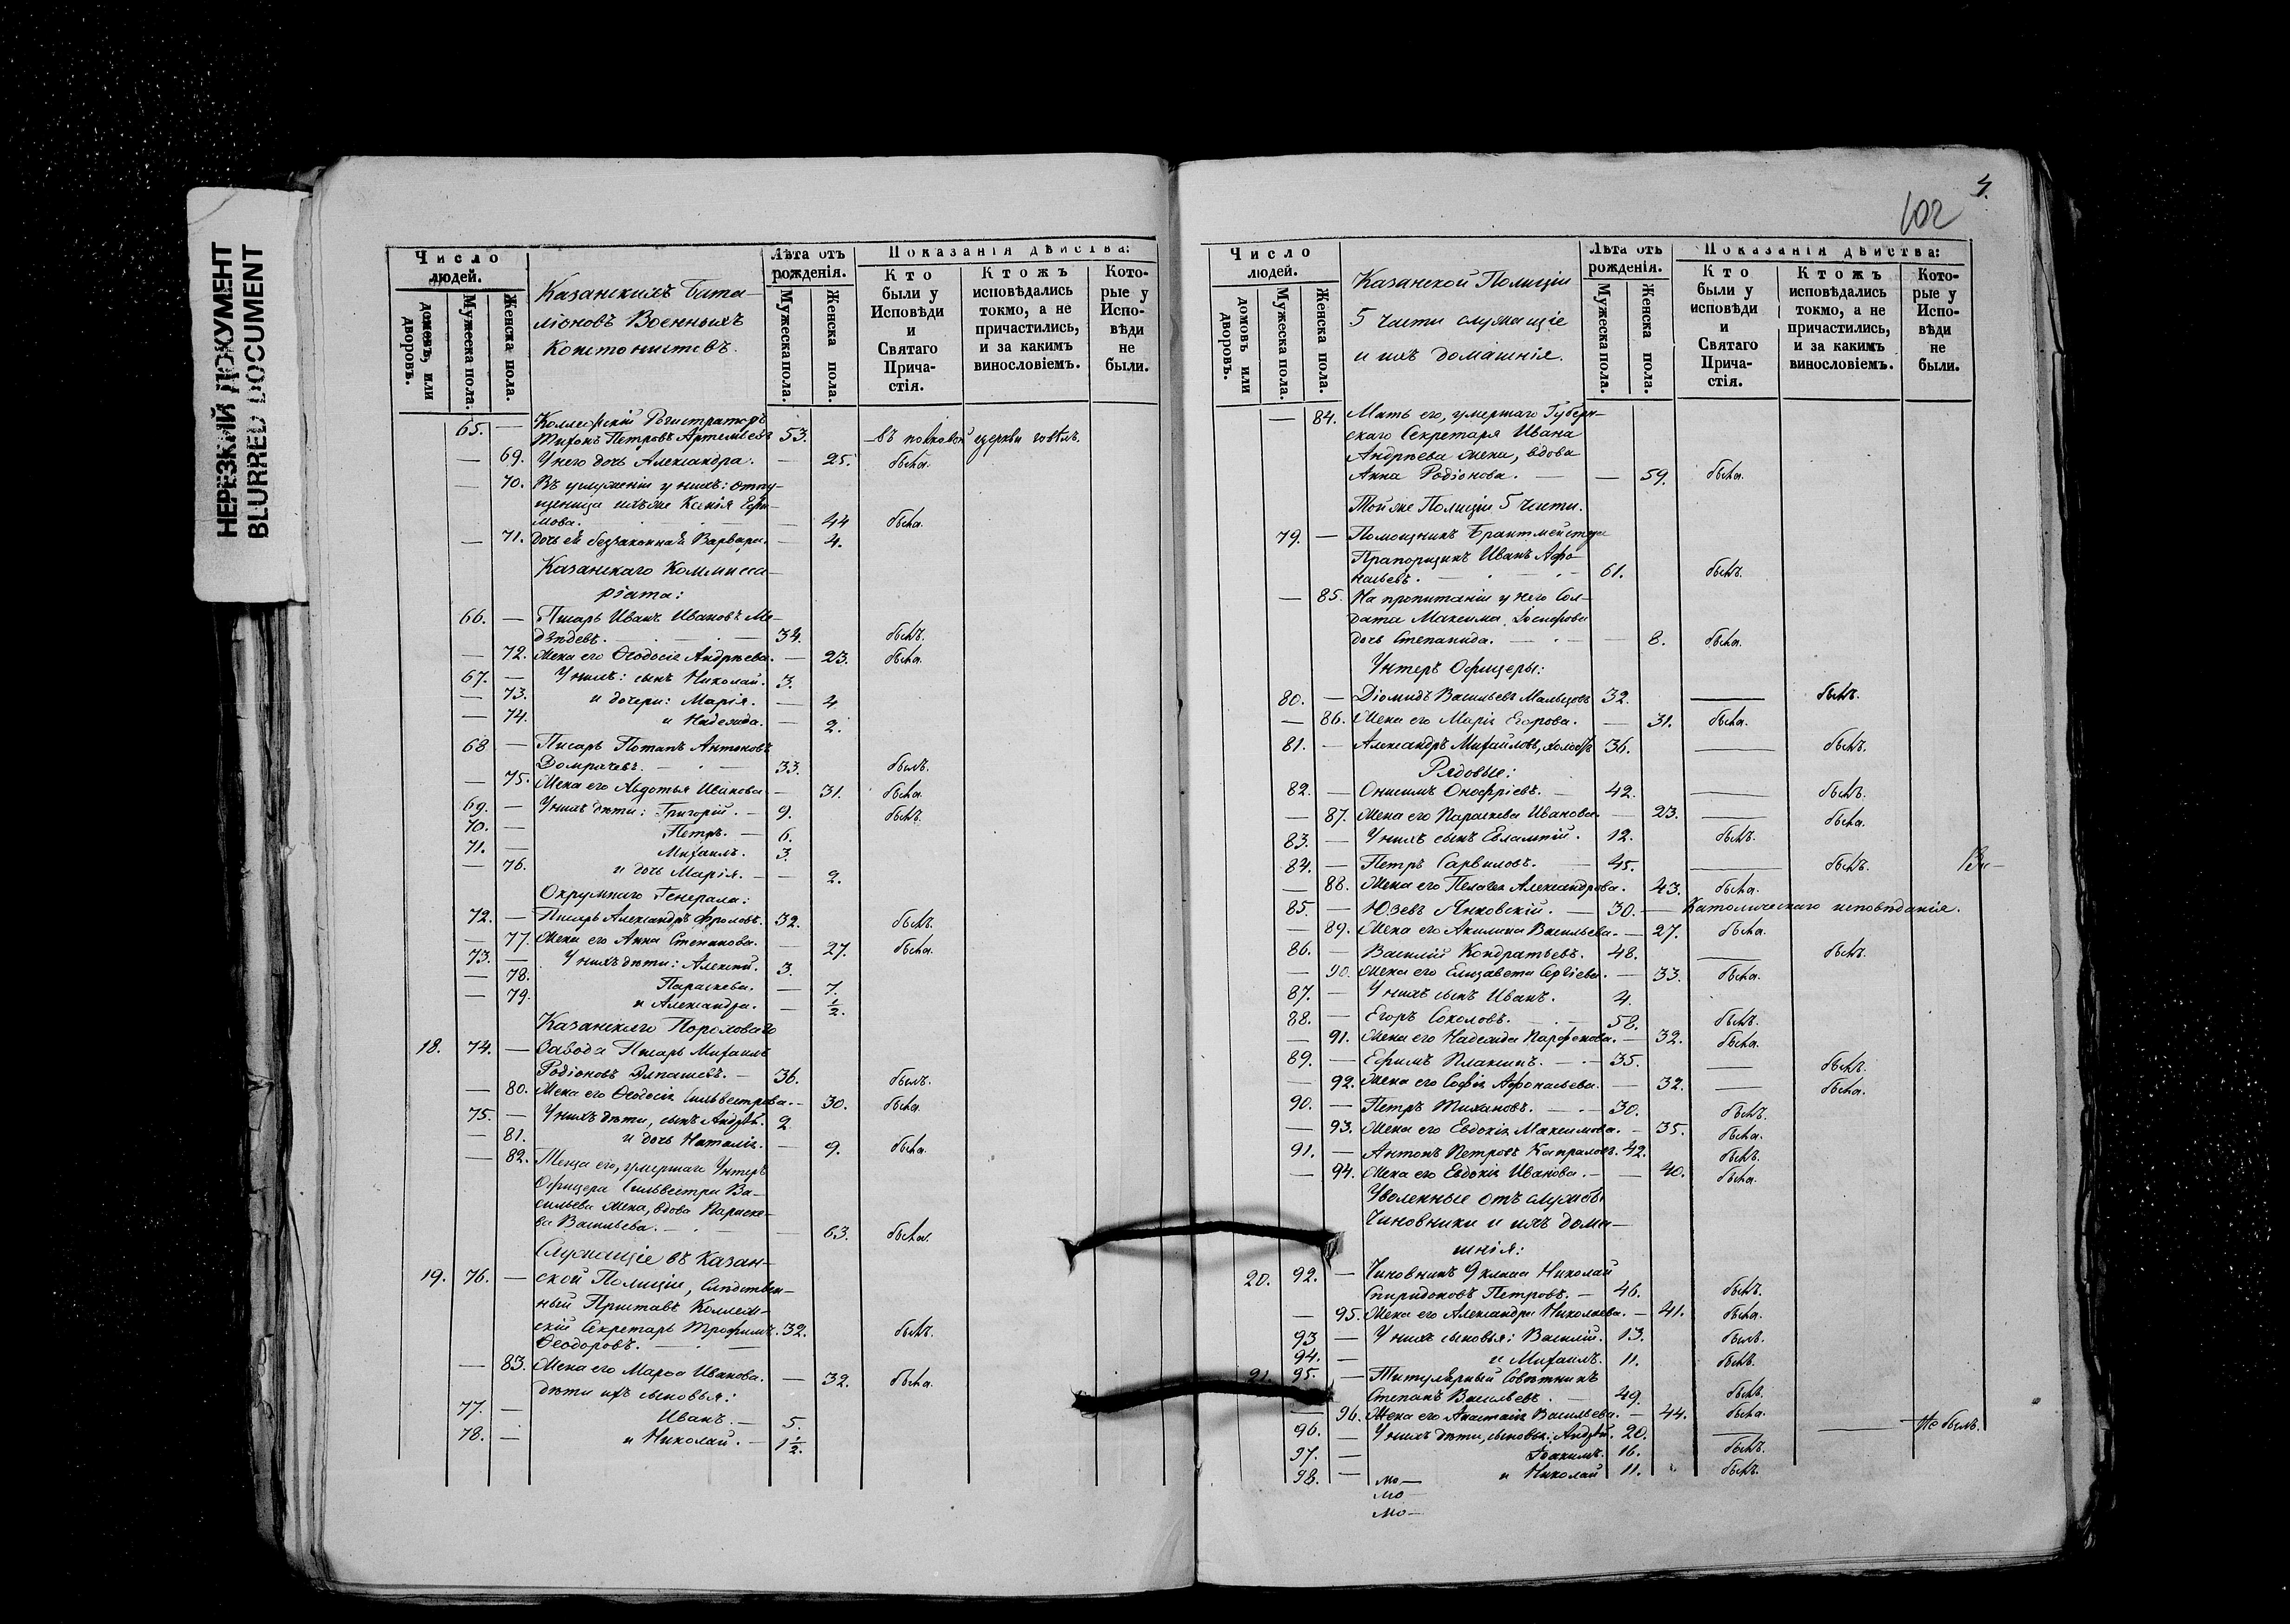 НЕРЕЗКИЙ ДОКУМЕНТ
BLURRED DOCUMENT
Число людей.
домовъ, или дворовъ.
Мужеска пола.
Женска пола.
Казанскихъ Бата-
ліоновъ Военныхъ
Контонистовъ.
Лѣта отъ рожденія.
Мужеска пола.
Женска пола.
Показанія дѣйства:
Кто были у Исповѣди и Святаго Прича-стія.
Ктожъ исповѣдались токмо, а не причастились, и за какимъ винословіемъ.
Кото-рые у Испо-вѣди не были.
65. — Коллежскій Регистраторъ
Тихонъ Петровъ 53. — въ полковой церкви говѣлъ.
— 69. У него дочь Александра. — 25. была.
— 70. Въ услуженіи у нихъ: отпу-
щеница ихъ же
мова. — 44 была.
— 71. Дочь ея беззаконная Варвара. — 4.
Казанскаго Коммиса-
ріата:
66. — Писарь Иванъ Ивановъ Ме-
двѣдевъ. — 34. былъ.
— 72. Жена его Ѳеодосія Андреева. — 23. была.
67. — У нихъ: сынъ Николай. 3.
— 73. и дочери: Марія. — 4
— 74. и Надежда. — 2.
68 — Писарь Потапъ Антоновъ
Домрачевъ. — 33. былъ.
— 75. Жена его Авдотья Иванова — 31. была.
69. — У нихъ дѣти: Григорій. — 9. былъ.
70. — Петръ. — 6.
71. — Михаилъ. 3.
— 76. и дочь Марія. — 2.
Окружнаго Генерала:
72. — Писарь Александръ Фроловъ. 32. былъ.
— 77. Жена его Анна Степанова. — 27. была.
73. — У нихъ дѣти: Алексѣй. 3.
— 78. Параскева. — 7.
— 79. и Александра. — ½.
Казанскаго Пороховаго
18. 74. — Завода Писарь Михаилъ
Родіоновъ — 36. былъ.
— 80. Жена его Ѳеодосія Сильвестрова. — 30. была.
75. — У нихъ дѣти, сынъ Андрей. 2
— 81. и дочь Наталія. — 9. была.
— 82. Теща его, умершаго Унтеръ
Офицера Сильвестра Ва-
сильева жена, вдова Параске-
ва Васильева. — 63. была.
Служащіе въ Казан-
19. 76. — ской Полиціи, Слѣдствен-
ный Приставъ Коллеж-
скій Секретарь Трофимъ 32. былъ.
Ѳеодоровъ. —
— 83. Жена его Марѳа Иванова. — 32. была.
дѣти ихъ сыновья:
77. — Иванъ. — 5.
78. — и Николай. — 1½.
4.
102
Число людей.
домовъ или дворовъ.
Мужеска пола.
Женска пола.
Казанской Полиціи
5 части служащіе
и ихъ домашнія.
Лѣта отъ рожденія.
Мужеска пола.
Женска пола.
Показанія дѣйства:
Кто были у исповѣди и Святаго Прича-стія.
Ктожъ исповѣдались токмо, а не причастились, и за какимъ винословіемъ.
Кото-рые у Испо-вѣди не были.
— 84. Мать его, умершаго Губерн-
скаго Секретаря Ивана
Андреева жена, вдова
Анна Родіонова. — — 59. была.
Той же Полиціи 5 части.
79. — Помощникъ Брантмейстера
Прапорщикъ Иванъ Афо-
насьевъ. — 61. былъ.
— 85. На пропитаніи у него Сол-
дата Максима Іосифова
дочь Степанида. — 8. была.
Унтеръ Офицеры:
80. — Діомидъ Васильевъ Мальцовъ 32. — былъ.
— 86. Жена его Марія Егорова. — 31. была.
81. — Александръ Михайловъ, холостъ 36. — былъ.
Рядовые:
82. — Онисимъ Онофріевъ. — 42. — былъ.
— 87. Жена его Параскева Иванова. — 23. — была.
83. — У нихъ сынъ Евлампій. 12. былъ.
84. — Петръ Сарвиловъ. — 45. — былъ.
— 88. Жена его Пелагея Александрова. 43. была.
85. — Юзевъ Янковскій. — 30. — Католическаго исповѣданія.
— 89. Жена его Акилина Васильева. — 27. была.
86. — Василій Кондратьевъ. 48. — былъ.
— 90. Жена его Елизавета Сергіева. — 33. была.
87. — У нихъ сынъ Иванъ. 4.
88. — Егоръ Соколовъ. — 58. былъ.
— 91. Жена его Надежда Парфенова. — 32. была.
89. — Ефимъ Плакинъ. — 35. — былъ.
— 92. Жена его Софія Афонасьева. — 32. — была.
90. — Петръ Тихановъ. — 30. былъ.
— 93. Жена его Евдокія Максимова. — 35. была.
91. — Антонъ Петровъ 42. былъ.
— 94. Жена его Евдокія Иванова. — 40. была.
Уволенные отъ службы
Чиновники и ихъ дома-
шнія:
20. 92. — Чиновникъ 9 класа Николай
Спиридоновъ Петровъ. — 46. былъ.
— 95. Жена его Александра Николаева. — 41. была.
93 — У нихъ сыновья: Василій. 13. былъ.
94. — и Михаилъ. 11. былъ.
21. 95. — Титулярный Совѣтникъ
Степанъ Васильевъ. — 49. былъ.
— 96. Жена его Анастасія Васильева. — 44. была.
96. — У нихъ дѣти, сыновья: Андрей. 20. — — Не былъ.
97. — Іоакимъ. 16. былъ.
98. — и Николай 11. былъ.